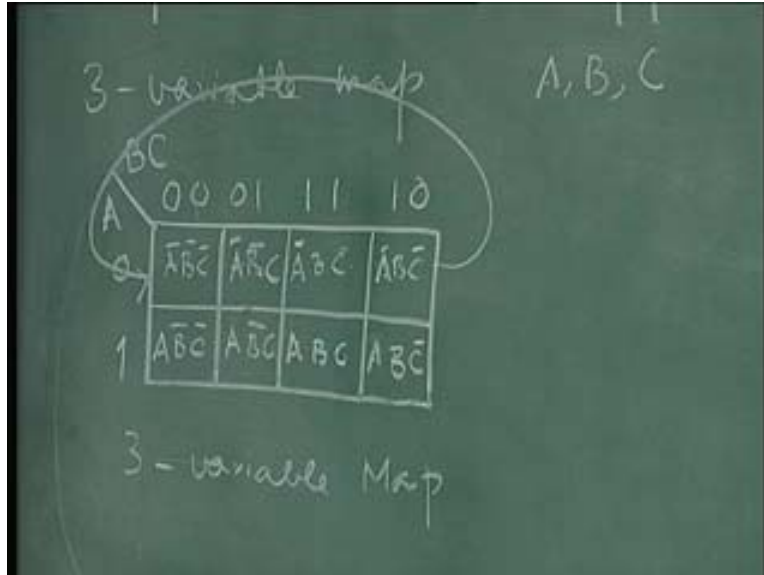 3-variable map A, B, C
BC
A 00 01 11 10
0 A̅B̅C̅ A̅B̅C A̅BC A̅BC̅
1 AB̅C̅ AB̅C ABC ABC̅
3-variable Map